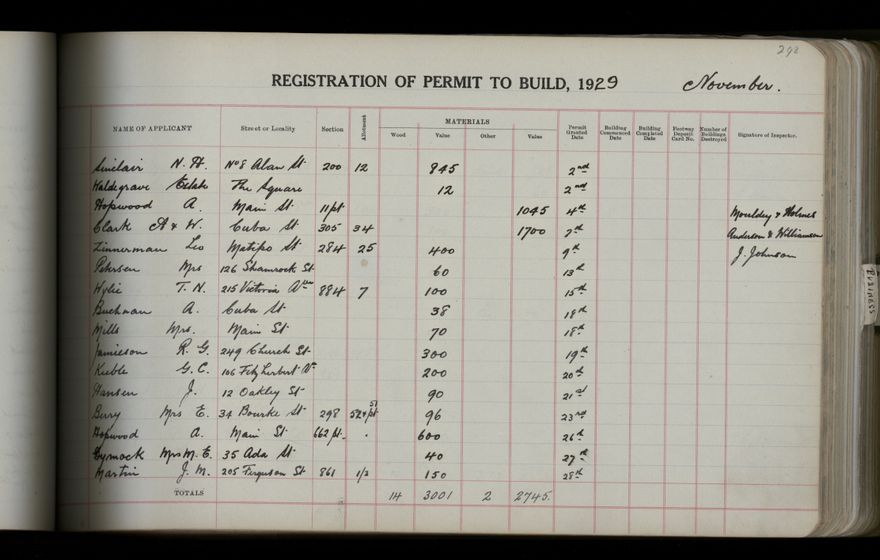 292
REGISTRATION OF PERMIT TO BUILD, 1929 November.
NAME OF APPLICANT Street or Locality Section Allotment MATERIALS Permit Granted Date Building Commenced Date Building Completed Date Footway Deposit Card No. Number of Buildings Destroyed Signature of Inspector.
Wood Value Other Value
Sinclair N. H. No 8 Alan St 200 12 845 2nd
Waldegrave Estate The Square 12 2nd
Hopwood A. Main St 11pt 1045 4th Mouldey & Holmes
Clark A & W. Cuba St 305 34 1700 7th Anderson & Williamson
Zinnerman Leo Matipo St 284 25 400 9th J. Johnson
Petersen Mrs 126 Shamrock St 60 13th
Wylie T. N. 215 Victoria Ave 884 7 100 15th
Buchman A. Cuba St 38 18th
Mills Mrs. Main St 70 18th
Jamieson R. G. 249 Church St 300 19th
Keeble G. C. 106 Fitzherbert Ave 200 20th
Hansen J. 12 Oakley St 90 21st
Berry Mrs E. 34 Bourke St 298 96 23rd
Hopwood A. Main St 662 pt. 600 26th
Mrs M. E. 35 Ada St 40 27th
Martin J. M. 205 Ferguson St 861 1/2 150 28th
TOTALS 14 3001 2 2745.
BUSINESS